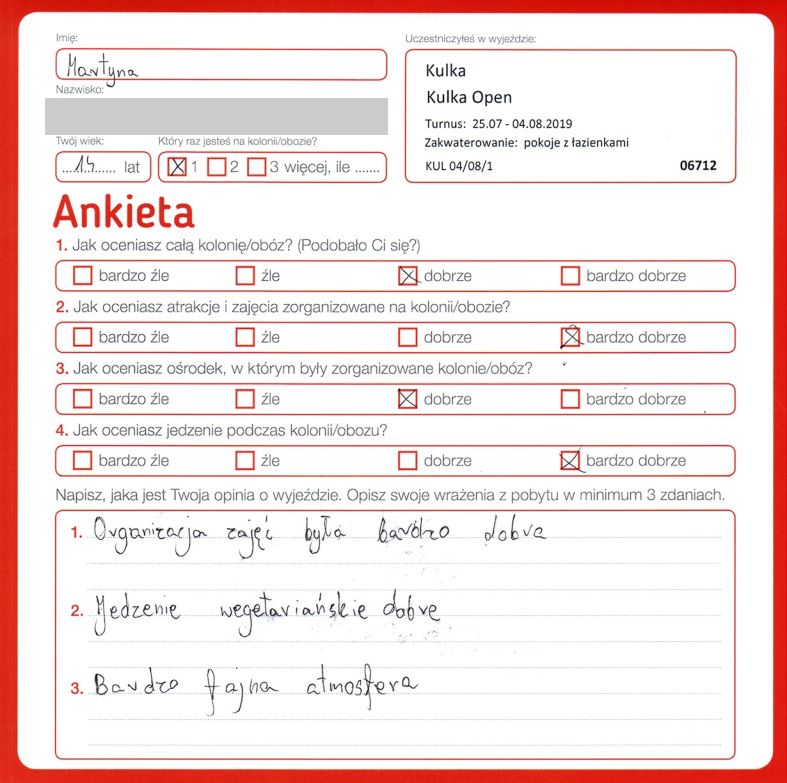 Imię:
Martyna
Nazwisko:
Twój wiek:
14 lat
Który raz jesteś na kolonii/obozie?
1 2 3 więcej, ile .......
Uczestniczyłeś w wyjeździe:
Kulka
Kulka Open
Turnus: 25.07 - 04.08.2019
Zakwaterowanie: pokoje z łazienkami
KUL 04/08/1 06712
Ankieta
1. Jak oceniasz całą kolonię/obóz? (Podobało Ci się?)
bardzo źle źle dobrze bardzo dobrze
2. Jak oceniasz atrakcje i zajęcia zorganizowane na kolonii/obozie?
bardzo źle źle dobrze bardzo dobrze
3. Jak oceniasz ośrodek, w którym były zorganizowane kolonie/obóz?
bardzo źle źle dobrze bardzo dobrze
4. Jak oceniasz jedzenie podczas kolonii/obozu?
bardzo źle źle dobrze bardzo dobrze
Napisz, jaka jest Twoja opinia o wyjeździe. Opisz swoje wrażenia z pobytu w minimum 3 zdaniach.
1. Organizacja zajęć była bardzo dobra
2. Jedzenie wegetariańskie dobre
3. Bardzo fajna atmosfera